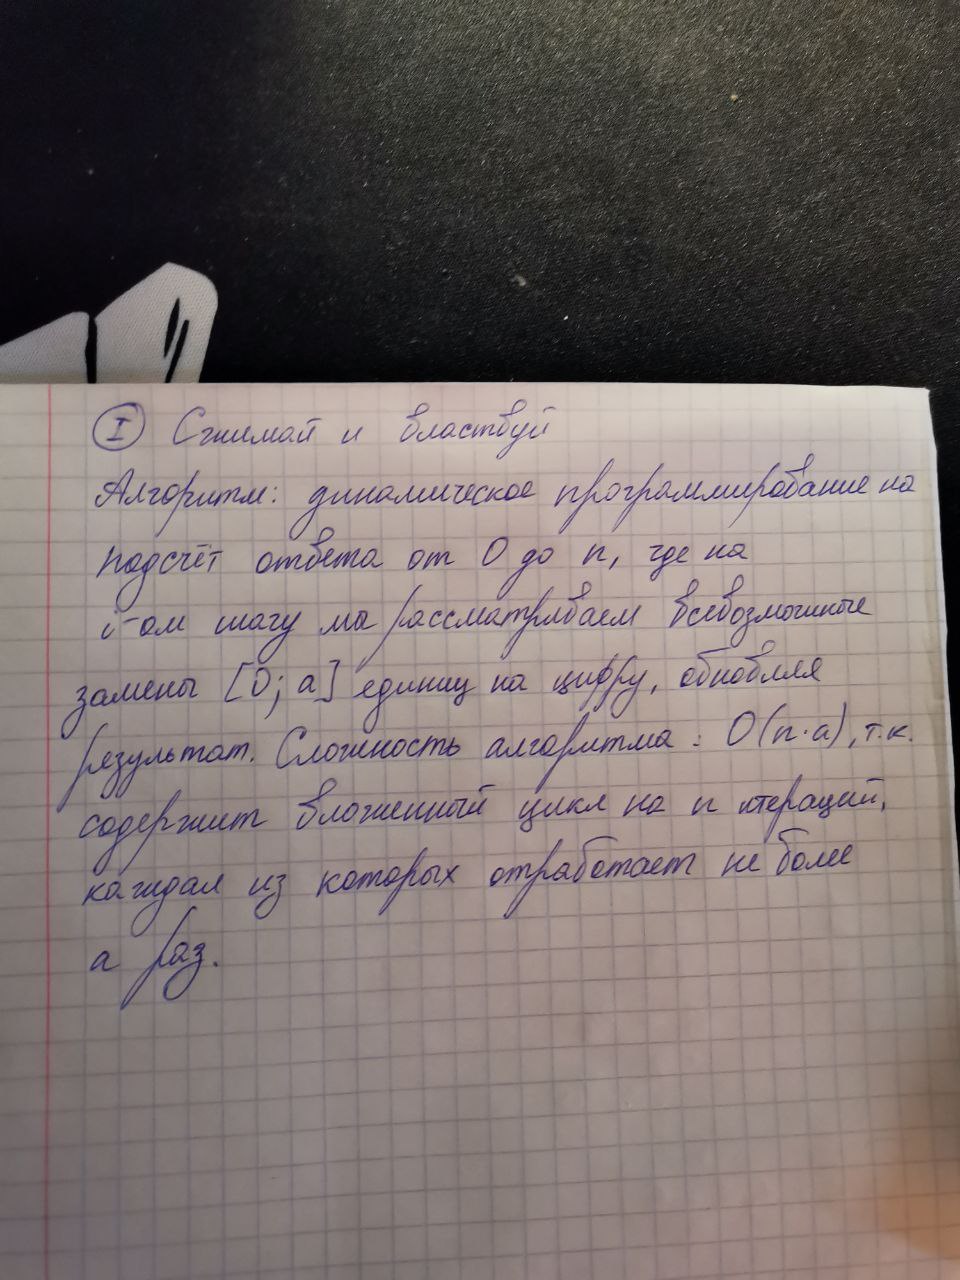 I Сжимай и властвуй
Алгоритм: динамическое программирование на
подсчёт ответа от 0 до n, где на
i-ом шагу мы рассматриваем всевозможные
замены [0; a] единиц на цифру, обновляя
результат. Сложность алгоритма: O(n·a), т.к.
содержит вложенный цикл на n итераций,
каждая из которых отработает не более
a раз.